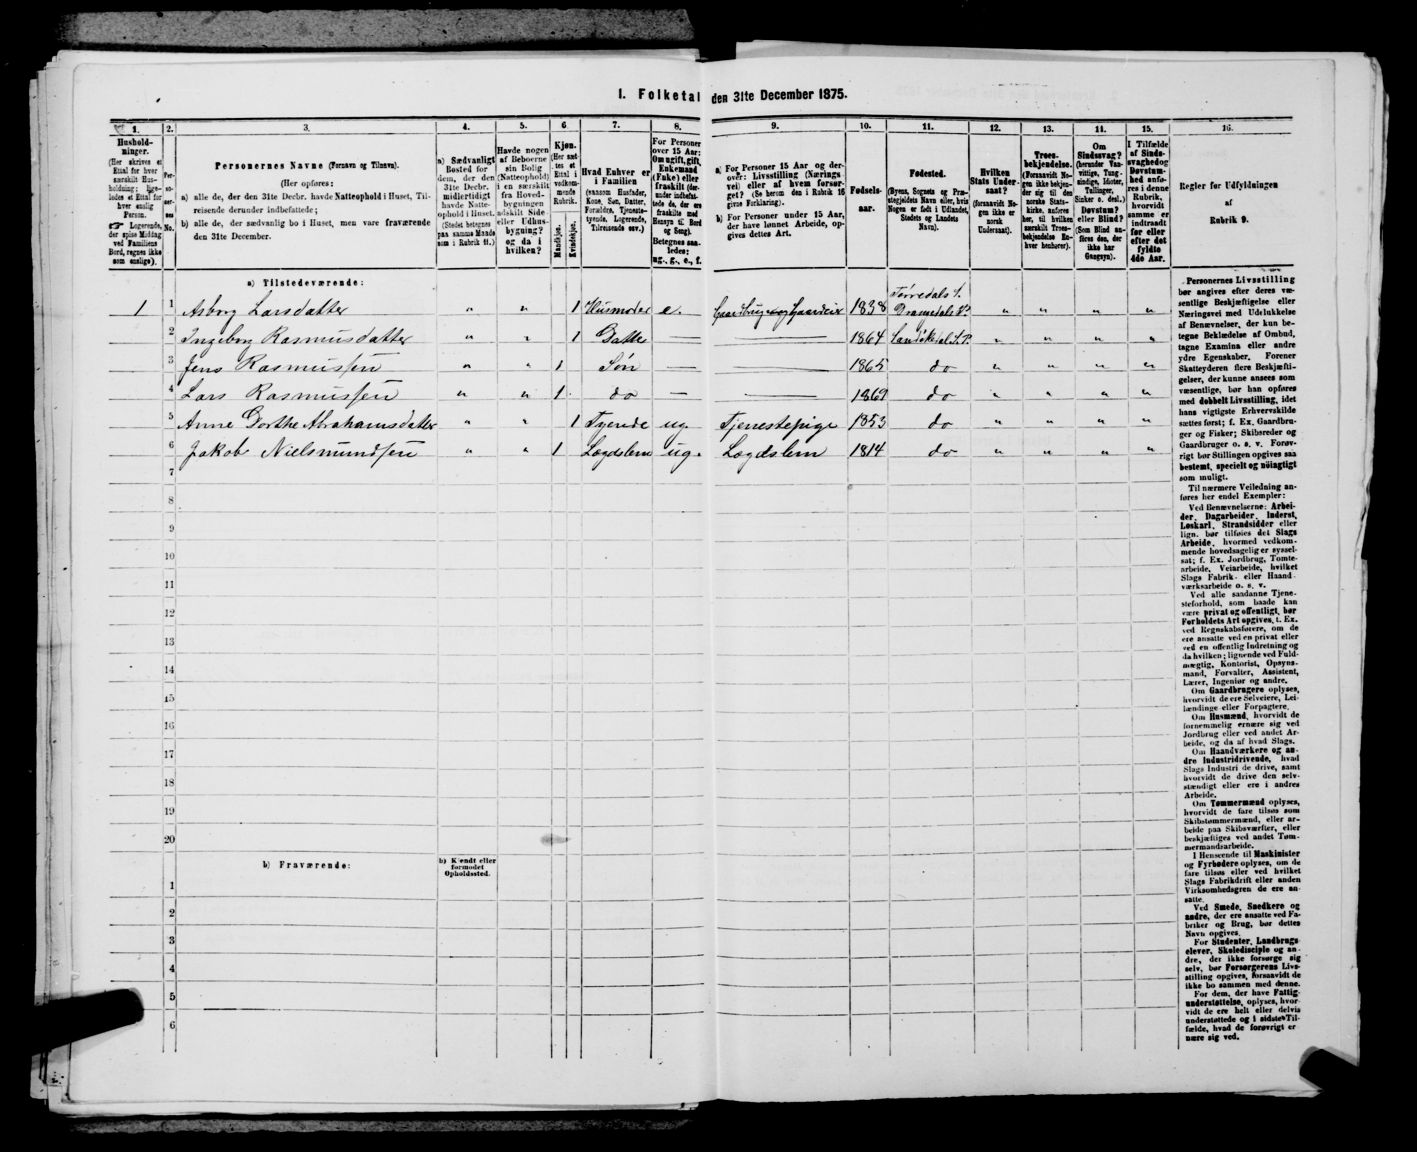 1. Folketal den 31te December 1875.
1.
Hushold-
ninger.
(Her skrives et
Ettal for hver
særskilt Hus-
holdning; lige-
ledes et Ettal for
hver enslig
Person.
☛ Logerende,
der spise Middag
ved Familiens
Bord, regnes ikke
som enslige).
2.
Per-
so-
ner-
nes
No.
3.
Personernes Navne (Fornavn og Tilnavn).
(Her opføres:
a) alle de, der den 31te Decbr. havde Natteophold i Huset, Til-
reisende derunder indbefattede;
b) alle de, der sædvanlig bo i Huset, men vare fraværende
den 31te December.
4.
a) Sædvanligt
Bosted for
dem, der den
31te Decbr.
midlertidigt
havde Natte-
ophold i Huset.
(Stedet betegnes
paa samme Maade
som i Rubrik 11.)
5.
Havde nogen
af Beboerne
sin Bolig
(Natteophold)
i en særskilt
fra Hoved-
bygningen
adskilt Side-
eller Udhus-
bygning?
og da i
hvilken?
6.
Kjøn.
(Her sæt-
tes et
Ettal i
vedkom-
mende
Rubrik.
Mandkjøn.
Kvindekjøn.
7.
Hvad Enhver er
i Familien
(saasom Husfader,
Kone, Søn, Datter,
Forældre, Tjeneste-
tyende, Logerende,
Tilreisende osv.)
8.
For Personer
over 15 Aar:
Om ugift, gift,
Enkemand
(Enke) eller
fraskilt (der-
under indbefat-
tede de, der ere
fraskilte med
Hensyn til Bord
og Seng).
Betegnes saa-
ledes:
ug., g., e., f.
9.
a) For Personer 15 Aar og der-
over: Livsstilling (Nærings
vei) eller af hvem forsør-
get? (Se herom den i Rubrik 16
givne Forklaring).
b) For Personer under 15 Aar,
der have lønnet Arbeide, op-
gives dettes Art.
10.
Fødsels-
aar.
11.
Fødested.
(Byens, Sognets og Præ-
stegjeldets Navn eller, hvis
Nogen er født i Udlandet,
Stedets og Landets
Navn).
12.
Hvilken
Stats Under-
saat?
(forsaavidt No-
gen ikke er
norsk
Undersaat).
13.
Troes-
bekjendelse.
(Forsaavidt No-
gen ikke bekjen-
der sig til den
norske Stats-
kirke, anføres
her, til hvilken
særskilt Troes-
bekjendelse En-
hver henhører).
14.
Om
Sindssvag?
(herunder Van-
vittige, Tung-
sindige, Idioter,
Tullinger,
Sinker o. desl.)
Døvstum?
eller Blind?
(Som Blind an-
føres den, der
ikke har
Gangsyn).
15.
I Tilfælde
af Sinds-
svaghed og
Døvstum-
hed anfø-
res i denne
Rubrik,
hvorvidt
samme er
indtraadt
før eller
efter det
fyldte
4de Aar.
16.
Regler for Udfyldningen
af
Rubrik 9.
a) Tilstedeværende:
1 1 Asborg Larsdatter " " 1 Husmoder e. Gaardbruger og Gaardeier 1838 Tørredals S. Drangedals P. " " " "
2 Ingeborg Rasmusdatter " " 1 Datter — — 1864 Sandøkedal S. P. " " " "
3 Jens Rasmussen " " 1 Søn — — 1865 do " " " "
4 Lars Rasmussen " " 1 do — — 1869 do " " " "
5 Anne Dorthe Abrahamsdatter " " 1 Tyende ug. Tjenestepige 1853 do " " " "
6 Jakob Nielsmundsen " " 1 Lægdslem ug. Lægdslem 1814 do " " " "
7
8
9
10
11
12
13
14
15
16
17
18
19
20
b) Fraværende:
b) Kjendt eller
formodet
Opholdssted.
1
2
3
4
5
6
Personernes Livsstilling
bør angives efter deres væ-
sentlige Beskjæftigelse eller
Næringsvei med Udelukkelse
af Benævnelser, der kun be-
tegne Beklædelse af Ombud,
tagne Examina eller andre
ydre Egenskaber. Forener
Skatteyderen flere Beskjæfti-
gelser, der kunne ansees som
væsentlige, bør han opføres
med dobbelt Livsstilling, idet
hans vigtigste Erhvervskilde
sættes først; f. Ex. Gaardbru-
ger og Fisker; Skibsreder og
Gaardbruger o. s. v. Forøv-
rigt bør Stillingen opgives saa
bestemt, specielt og nøiagtigt
som muligt.
Til nærmere Veiledning an-
føres her endel Exempler:
Ved Benævnelserne: Arbei-
der, Dagarbeider, Inderst,
Løskarl, Strandsidder eller
lign. bør tilføies det Slags
Arbeide, hvormed vedkom-
mende hovedsagelig er syssel-
sat; f. Ex. Jordbrug, Tomte-
arbeide, Veiarbeide, hvilket
Slags Fabrik- eller Haand-
værksarbeide o. s. v.
Ved alle saadanne Tjene-
steforhold, som baade kan
være privat og offentligt, bør
Forholdets Art opgives, t. Ex.
ved Regnskabsførere, om de
ere ansatte ved en privat eller
ved en offentlig Indretning og
da hvilken; lignende ved Fuld-
mægtig, Kontorist, Opsyns-
mand, Forvalter, Assistent,
Lærer, Ingeniør og andre.
Om Gaardbrugere oplyses,
hvorvidt de ere Selveiere, Lei-
lændinge eller Forpagtere.
Om Husmænd, hvorvidt de
fornemmelig ernære sig ved
Jordbrug eller ved andet Ar-
beide, og da af hvad Slags.
Om Haandværkere og an-
dre Industridrivende, hvad
Slags Industri de drive, samt
hvorvidt de drive den selv-
stændigt eller ere i andres
Arbeide.
Om Tømmermænd oplyses,
hvorvidt de fare tilsøs som
Skibstømmermænd, eller ar-
beide paa Skibsværfter, eller
beskjæftiges ved andet Tøm-
mermandsarbeide.
I Henseende til Maskinister
og Fyrbødere oplyses, om de
fare tilsøs eller ved hvilket
Slags Fabrikdrift eller anden
Virksomhedsgren de ere an-
satte.
Ved Smede, Snedkere og
andre, der ere ansatte ved Fa-
briker og Brug, bør dettes
Navn opgives.
For Studenter, Landbrugs-
elever, Skoledisciple og an-
dre, der ikke forsørge sig
selv, bør Forsørgerens Livs-
stilling opgives, forsaavidt de
ikke bo sammen med denne.
For dem, der have Fattig-
understøttelse, oplyses, hvor-
vidt de ere helt eller delvis
understøttede og i sidste Til-
fælde, hvad de forøvrigt er-
nære sig ved.